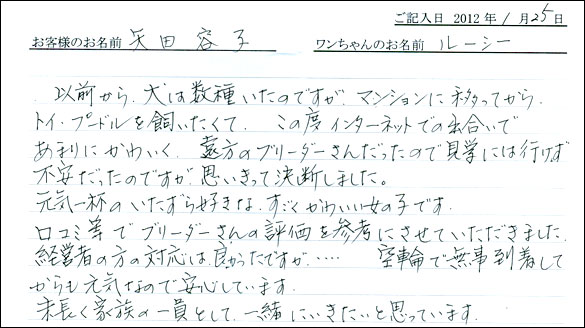 ご記入日 2012 年 1 月 25 日
お客様のお名前 矢田 容子 ワンちゃんのお名前 ルーシー
以前から、犬は数種いたのですが、マンションに移ってから、
トイ・プードルを飼いたくて、この度インターネットでの出合いで
あまりにかわいく、遠方のブリーダーさんだったので見学には行けず
不安だったのですが、思いきって決断しました。
元気一杯のいたずら好きな、すごくかわいい女の子です。
口コミ等でブリーダーさんの評価を参考にさせていただきました。
経営者の方の対応は良かったですが、…… 空輸で無事到着して
からも元気なので安心しています。
末長く家族の一員として、一緒にいきたいと思っています。